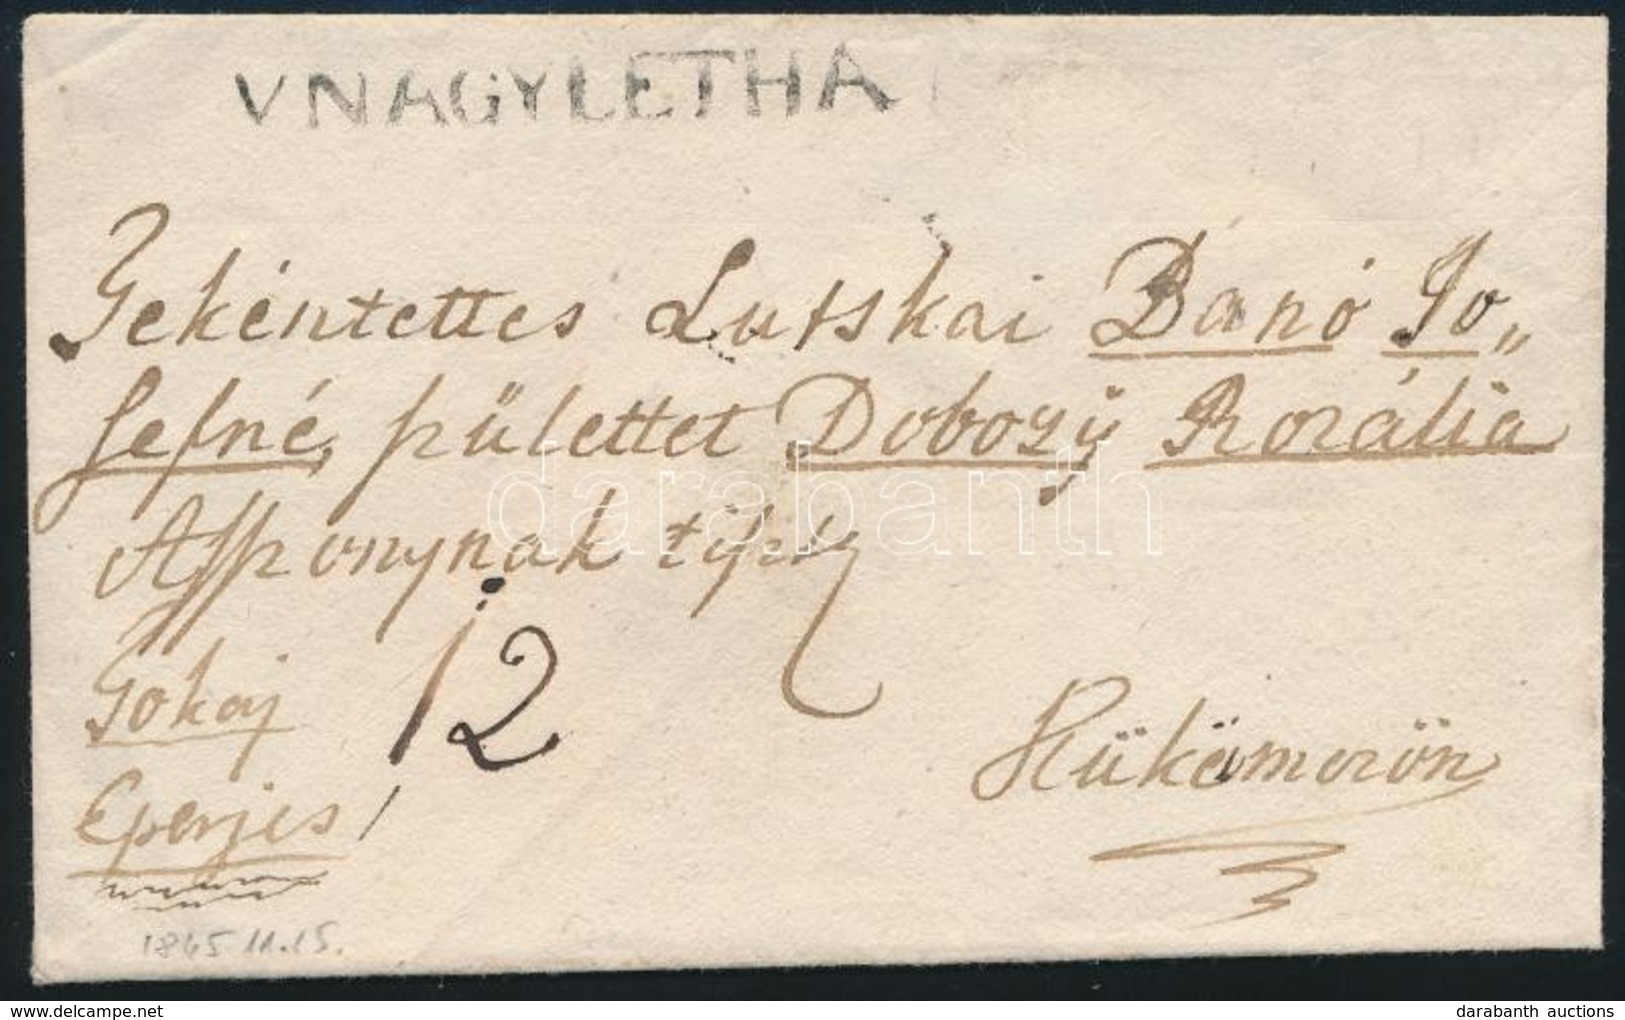 VNAGYLETHA
Tekéntettes Lutskai Bánó Jo„
sefné, született Dobozÿ Rozália
Asszonynak
12
Tokaj
Eperjes
Kükämezön
1845 11.15.
darabanth
delcampe.net
darabanth auctions